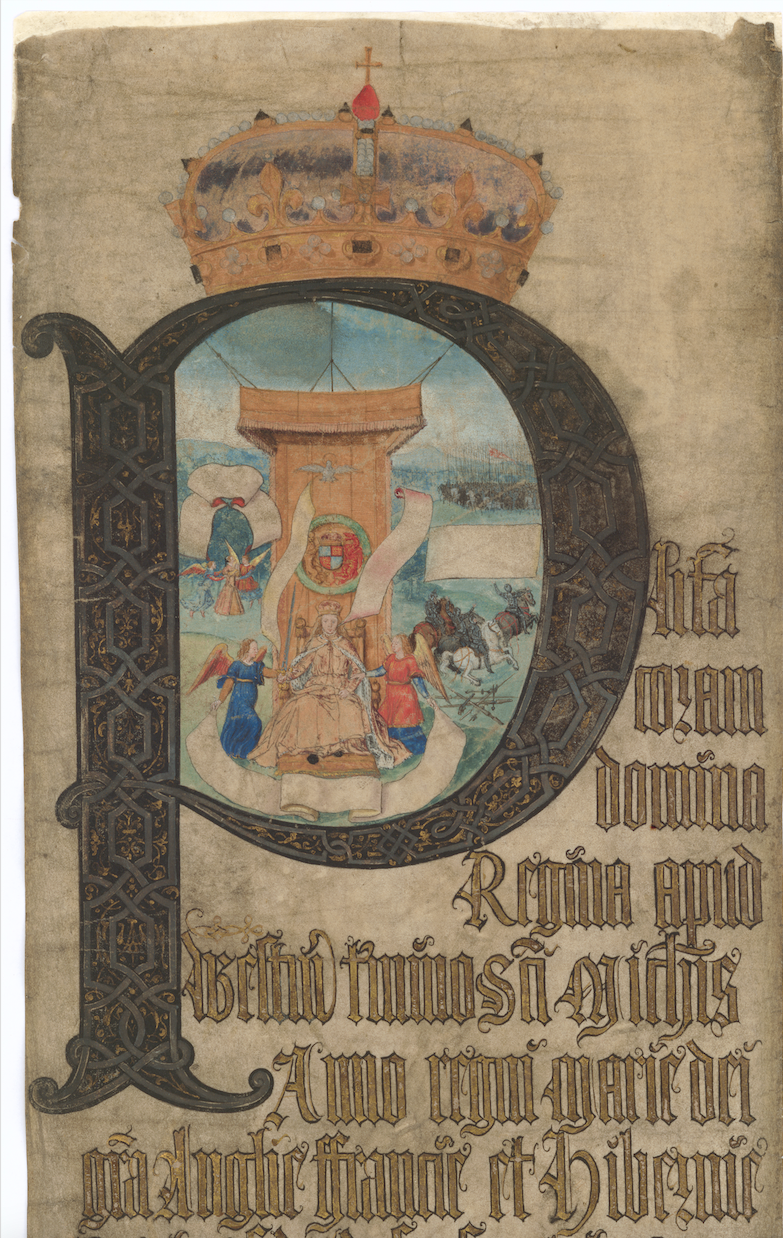 Plĩta
coram
domina
Regina apud
Westm̃ t̃mino Sc̃i Mich̃is
Anno regni Marie dei
gr̃a Anglie ffrancie et Hib̃nie